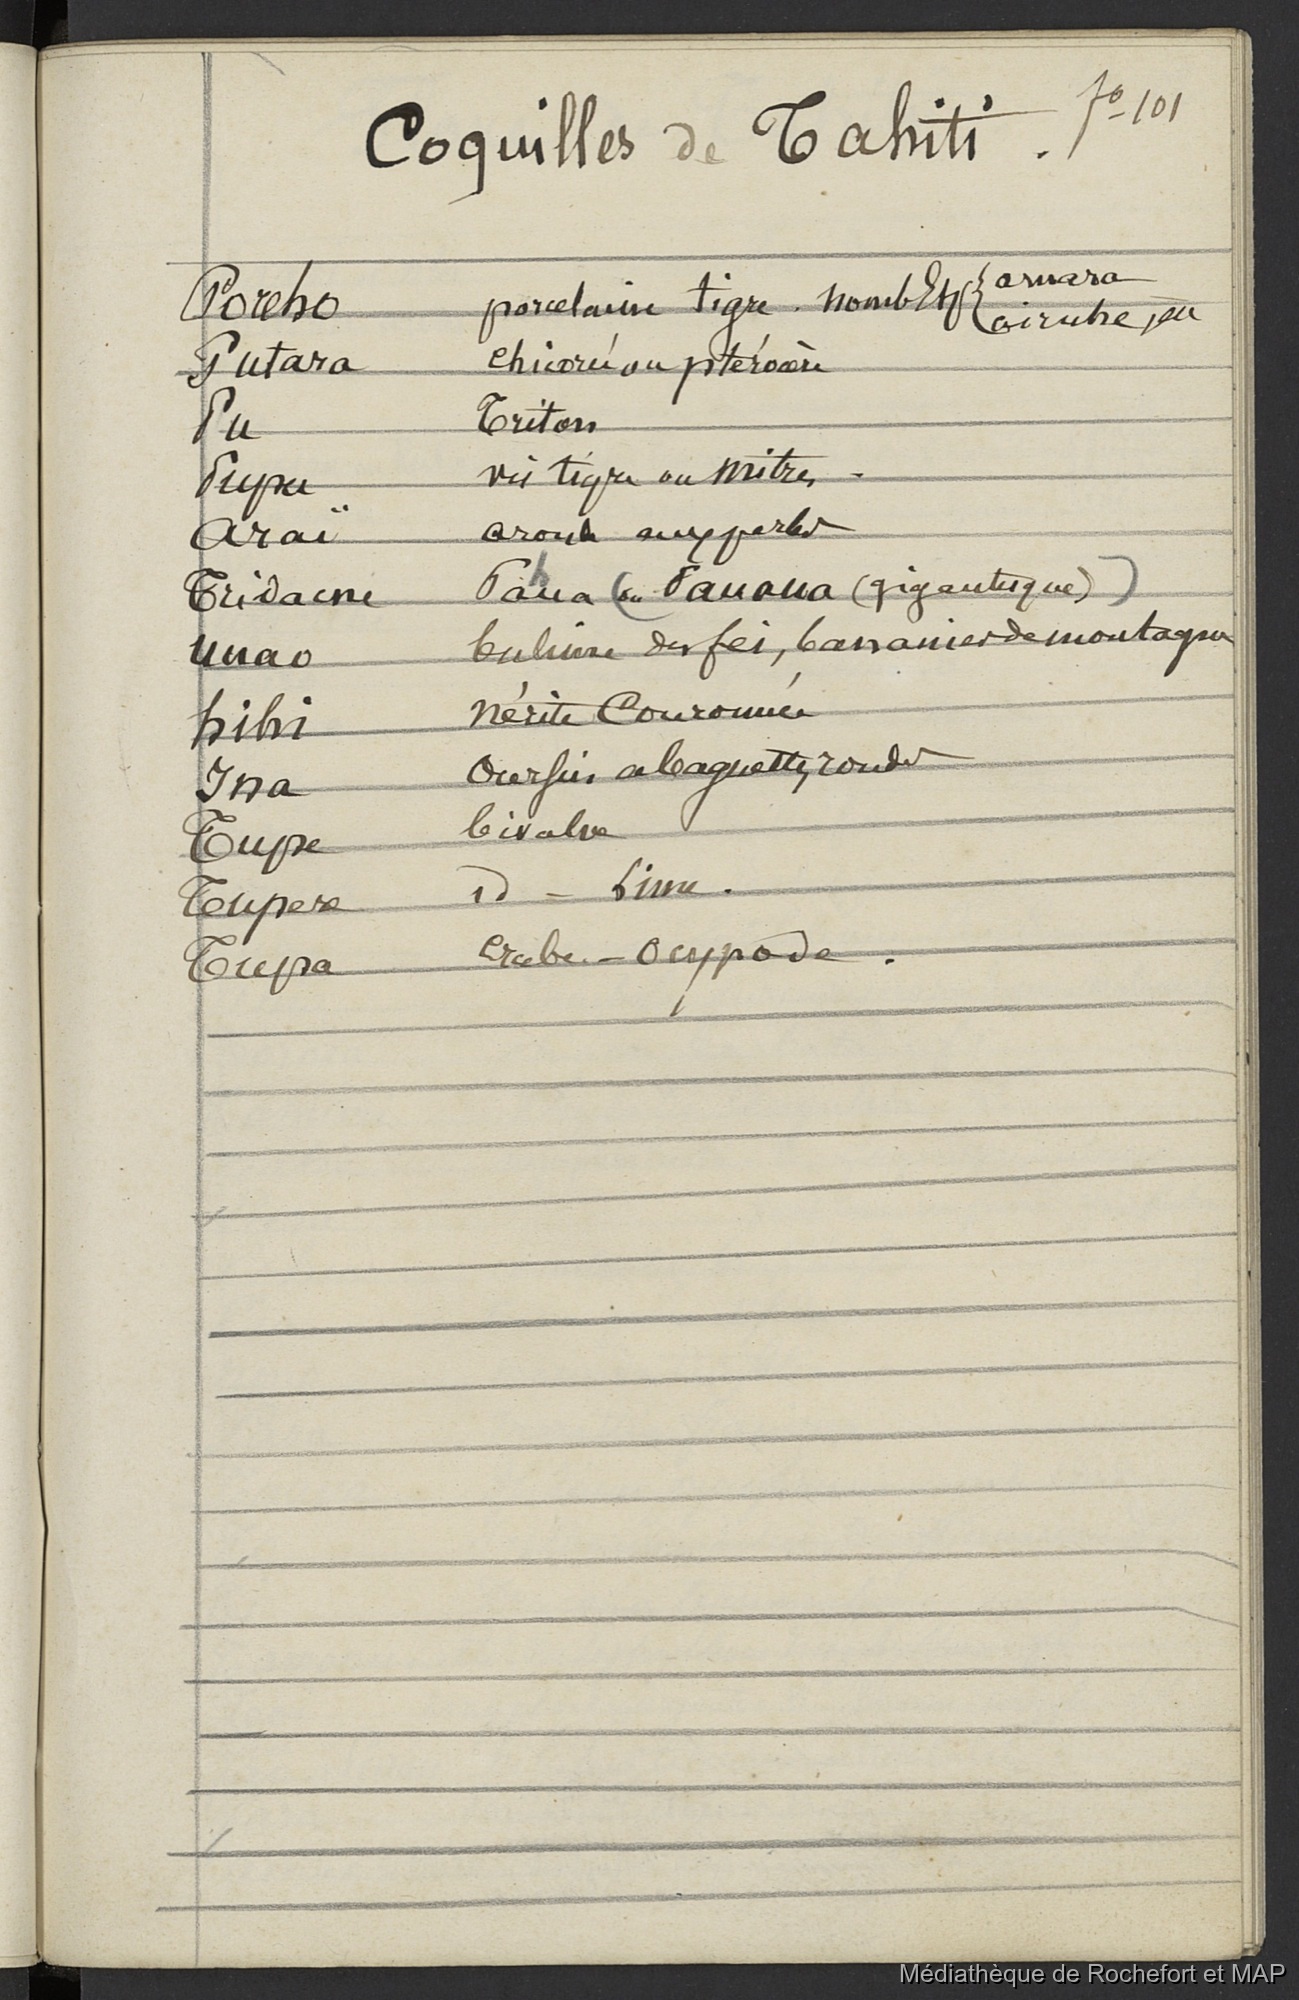 Coquilles de Tahiti. fo 101
Poreho porcelaine tigre. nomb
Putara chicorée ou ptérocère
Pu Triton
Pupu vis tigre ou mitres -
Araï aronde aux perles
Tridacne Pahua (ou Pauaua (gigantesque))
Uuao bulime des fei, bananiers de montagne
hihi Nérite Couronnée
Ina Oursin a baguettes rondes
Tupe bivalve
Tupere id - Lime.
Tupa Crabe - Ocypode.
Médiathèque de Rochefort et MAP